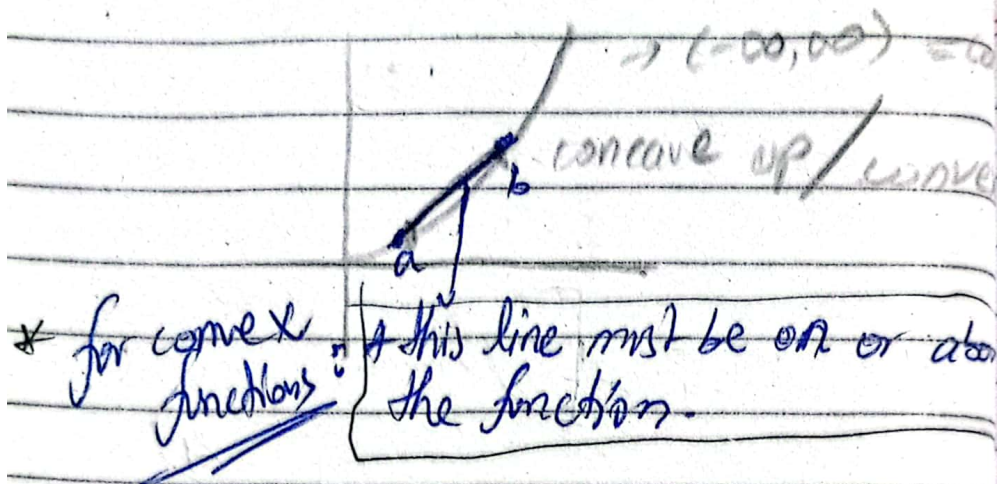 → (-∞,∞) =
concave up/
b
a
* for convex functions:
* this line must be on or
the function.